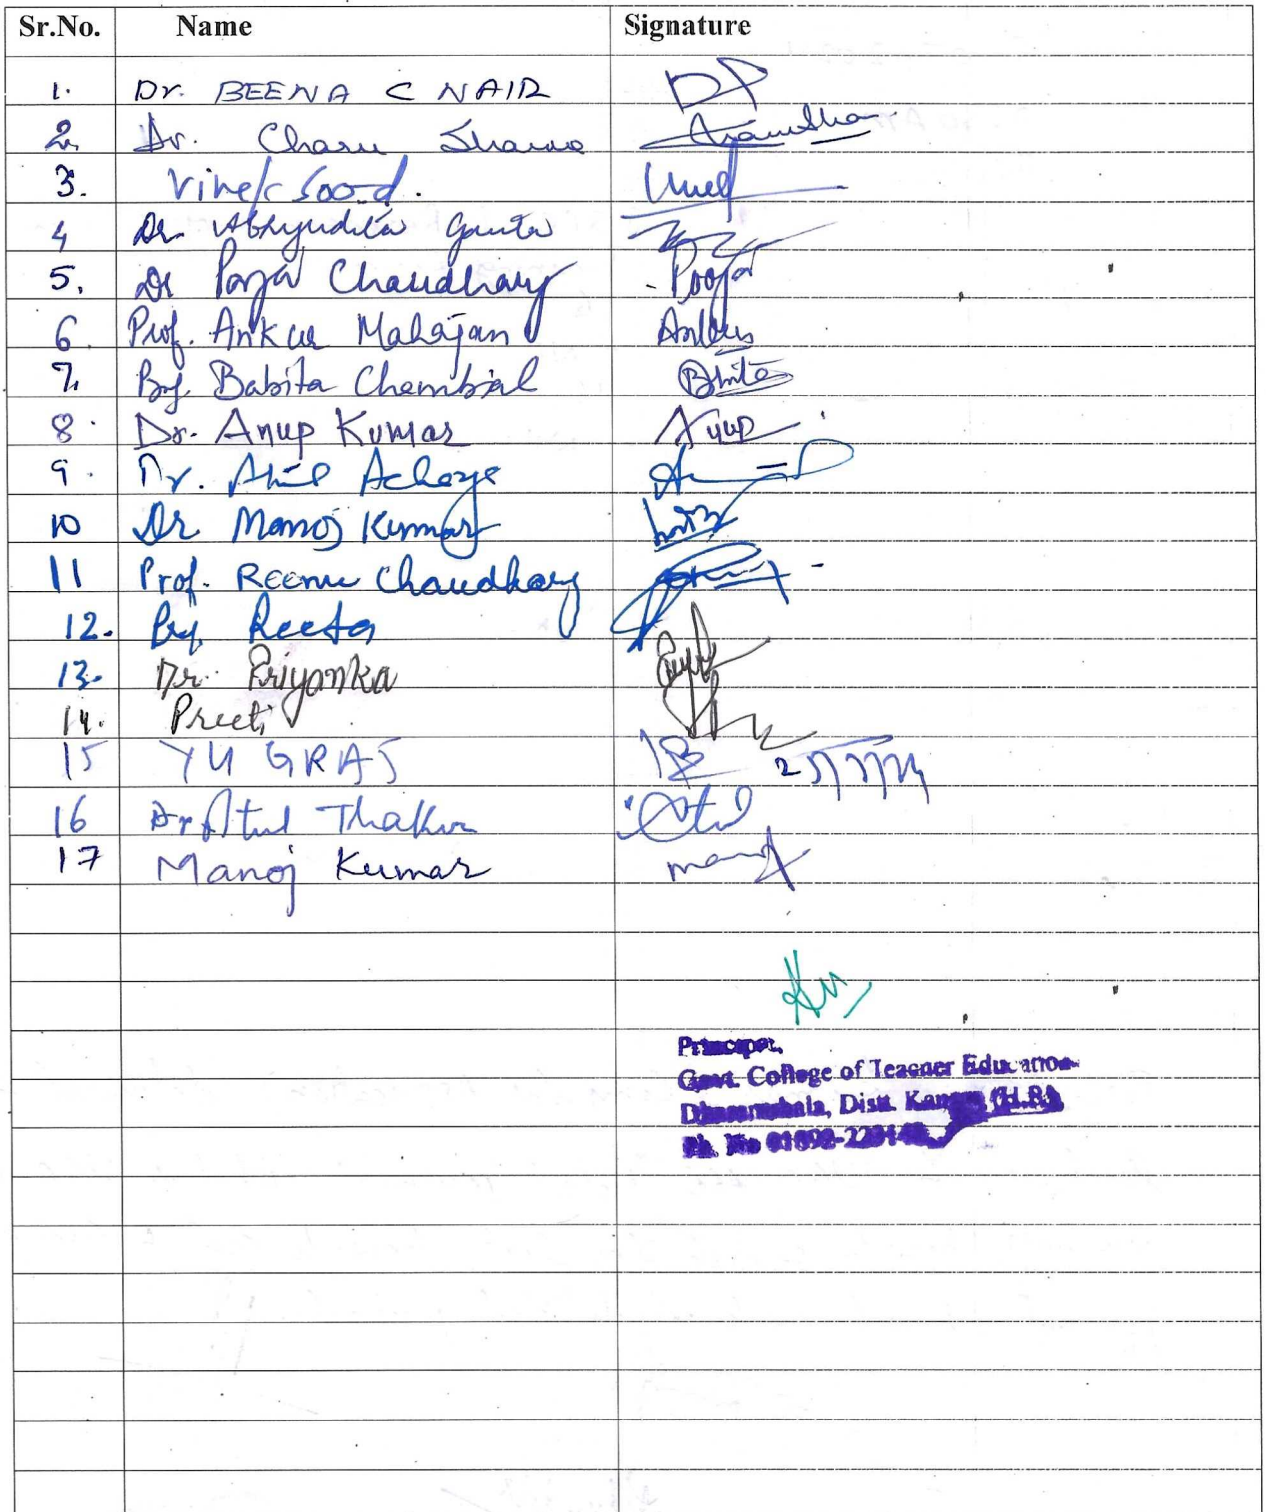 Sr.No. Name Signature
1. Dr. BEENA C NAIR
2. Dr. Charu Sharma
3. Vivek Sood.
4 Dr. Abhyudita Gautam
5. Dr Pooja Chaudhary Pooja
6. Prof. Ankur Mahajan
7. Prof. Babita Chambial
8. Dr. Anup Kumar Anup
9. Dr. Anil Acharya
10 Dr Manoj Kumar
11 Prof. Reenu Chaudhary
12. Prof. Reeta
13. Dr. Priyanka
14. Preeti
15 YUGRAJ
16 Dr Atul Thakur Atul
17 Manoj Kumar Manoj
Principal,
Govt. College of Teacher Education
Dharamshala, Distt. Kangra (H.P.)
Ph. No 01892-